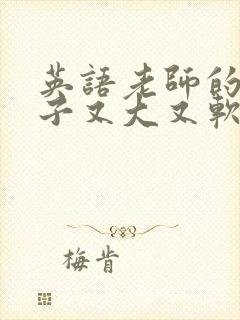 英語老師的
子又大又軟
梅肯